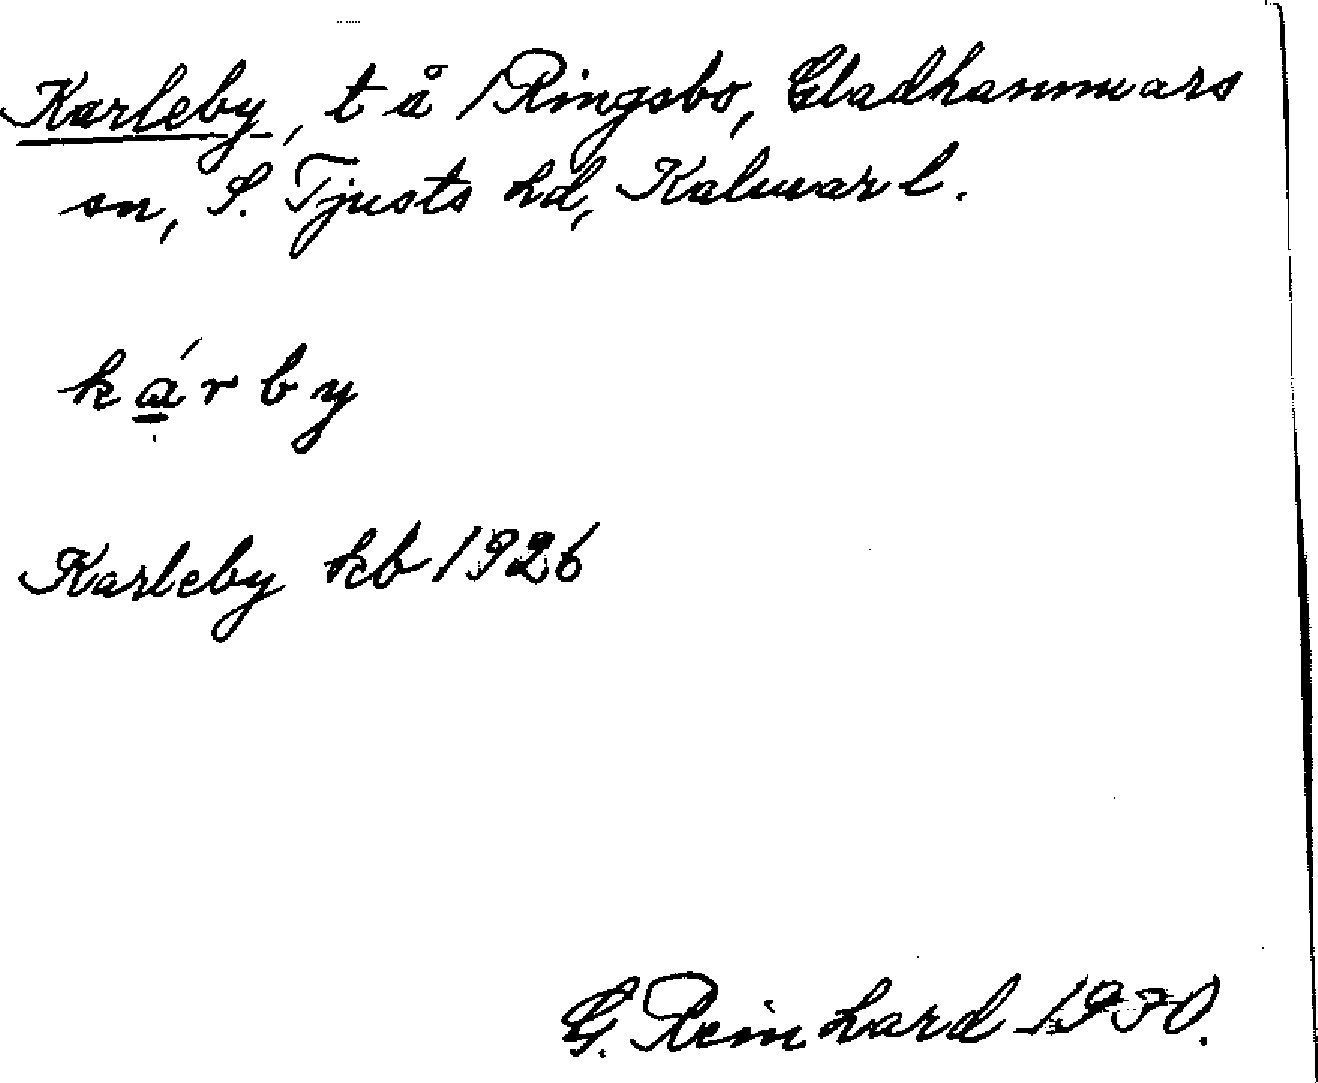 Karleby, t å Ringsbo, Gladhammars
sn, S. Tjusts hd, Kalmar l.
ká̱rby
Karleby kb 1926
G. Reinhard 1930.